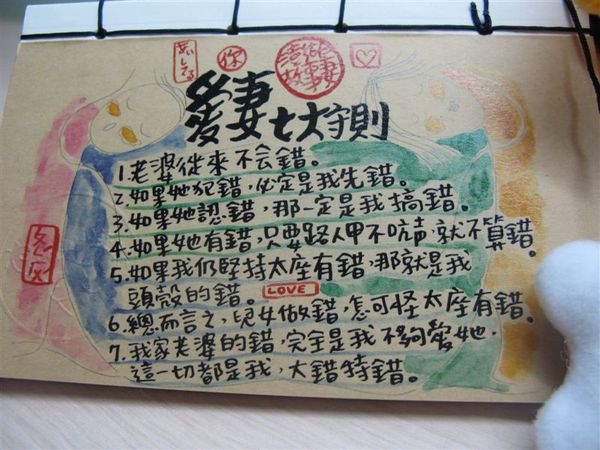 你
愛妻七大守則
1.老婆從來不会錯。
2.如果她犯錯，必定是我先錯。
3.如果她認錯，那一定是我搞錯。
4.如果她有錯，只要路人甲不吭声，就不算錯。
5.如果我仍堅持太座有錯，那就是我
頭殼的錯。 LOVE
6.總而言之，兒女做錯，怎可怪太座有錯。
7.我家老婆的錯，完全是我不夠愛她，
這一切都是我，大錯特錯。